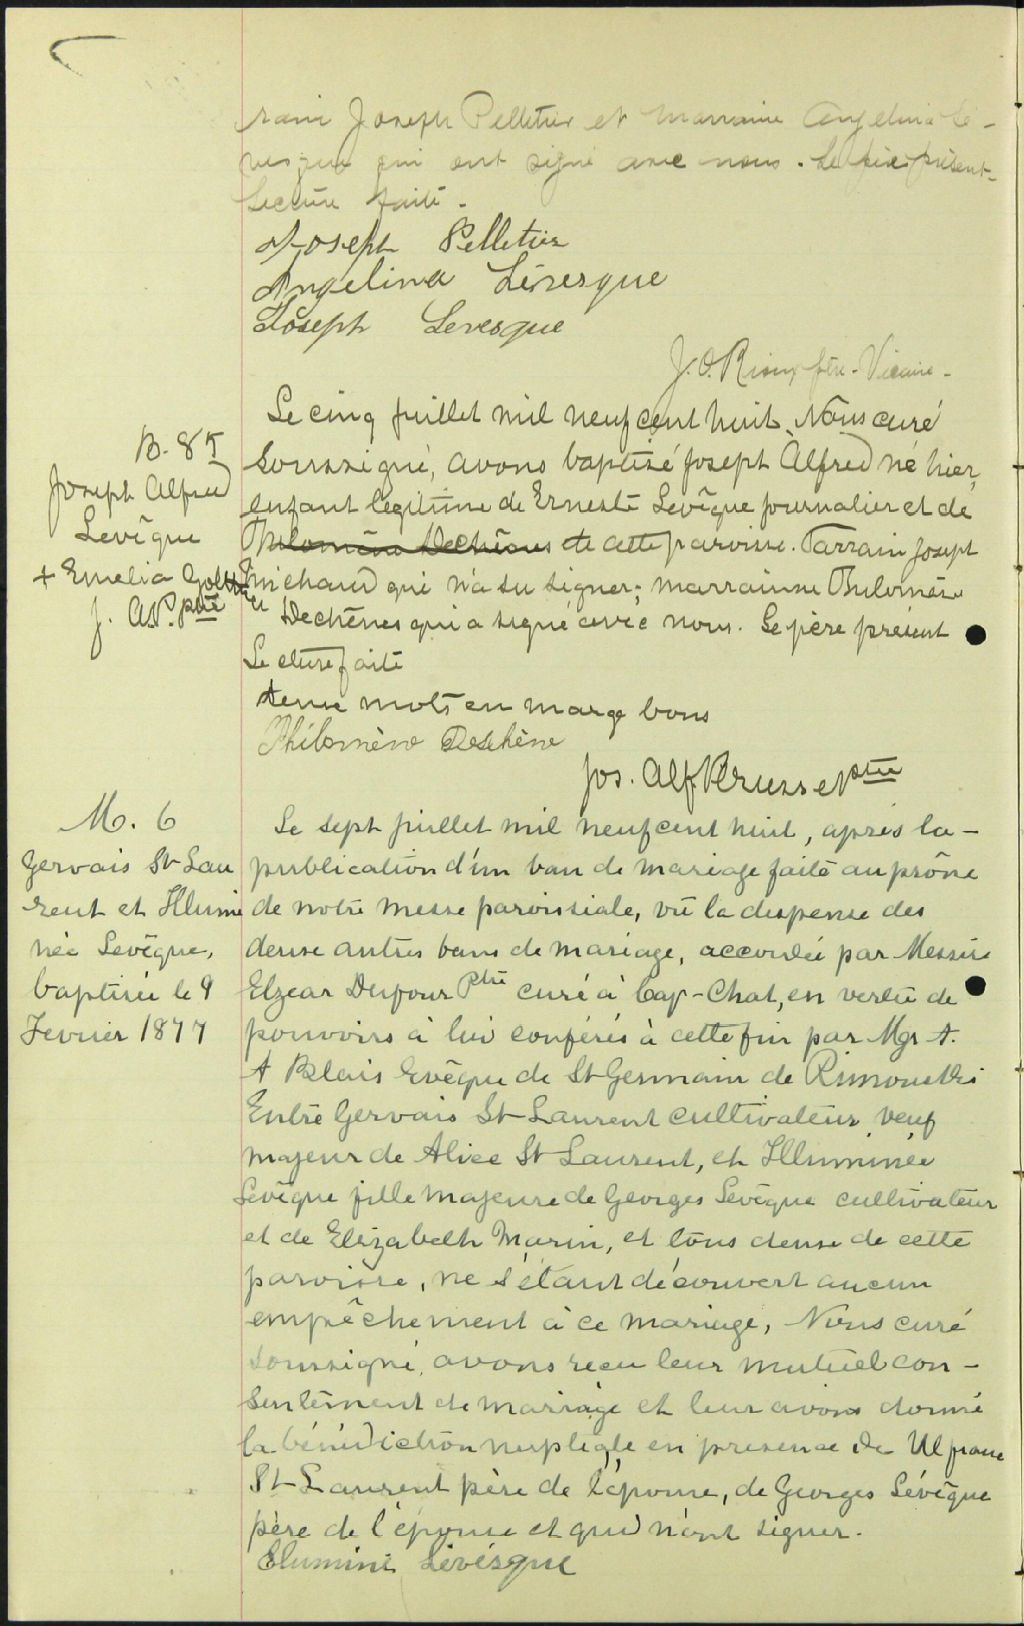 rain Joseph Pelletier et marraine Angelina Lé-
vesque qui ont signé avec nous. Le père présent-
Lecture faite.
Joseph Pelletier
Angelina Lévesque
Joseph Levesque
J. O. Rioux ptre-Vicaire-
B. 85
Joseph Alfred
Levêque
+ Emelia
J. A.P. ptre
Le cinq juillet mil neuf cent huit, Nous curé
soussigné, avons baptisé Joseph Alfred né hier,
enfant légitime de Erneste Levêque journalier et de
Philomène Dechênes de cette paroisse. Parrain Joseph
Michaud qui n'a su signer; marrainne Philomène
Dechênes qui a signé avec nous. Le père présent
Lecture faite
deux mots en marge bons
Philomène Deschêne
Jos. Alf. ptre
M. 6
Gervais St Lau
rent et Illumi
née Levêque,
baptisée le 9
Fevrier 1877
Le sept juillet mil neuf cent huit, après la-
publication d'un ban de mariage faite au prône
de notre messe paroissiale, vu la dispense des
deux autres bans de mariage, accordée par Messire
Elzear Dufour Ptre curé à Cap-Chat, en vertu de
pouvoirs à lui conférés à cette fin par Mgr A.
A Blais Evêque de St Germain de Rimouski
Entre Gervais St Laurent cultivateur, veuf
majeur de Alice St Laurent, et Illuminée
Levêque fille majeure de Georges Levêque cultivateur
et de Elizabeth Marin, et tous deux de cette
paroisse, ne s'étant découvert aucun
empêchement à ce mariage, Nous curé
soussigné, avons reçu leur mutuel con-
sentement de mariage et leur avons donné
la bénédiction nuptiale en presence de
St Laurent père de l'époux, de Georges Lévêque
père de l'épouse et qui n'ont signer.
Elumine Lévésque